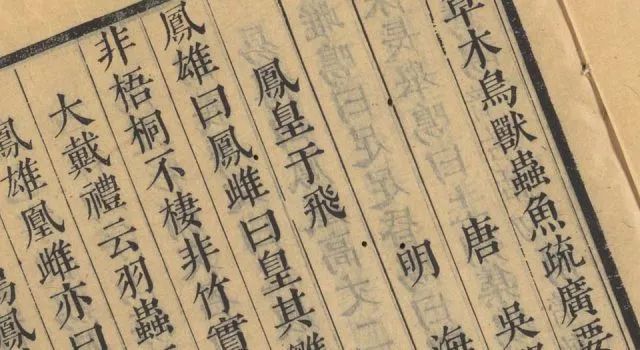 草木鳥獸蟲魚疏廣要
唐 吳
明 海
鳳皇于飛
鳳雄曰鳳雌曰皇其雛
非梧桐不棲非竹實
大戴禮云羽蟲
鳳雄凰雌亦曰
鳳